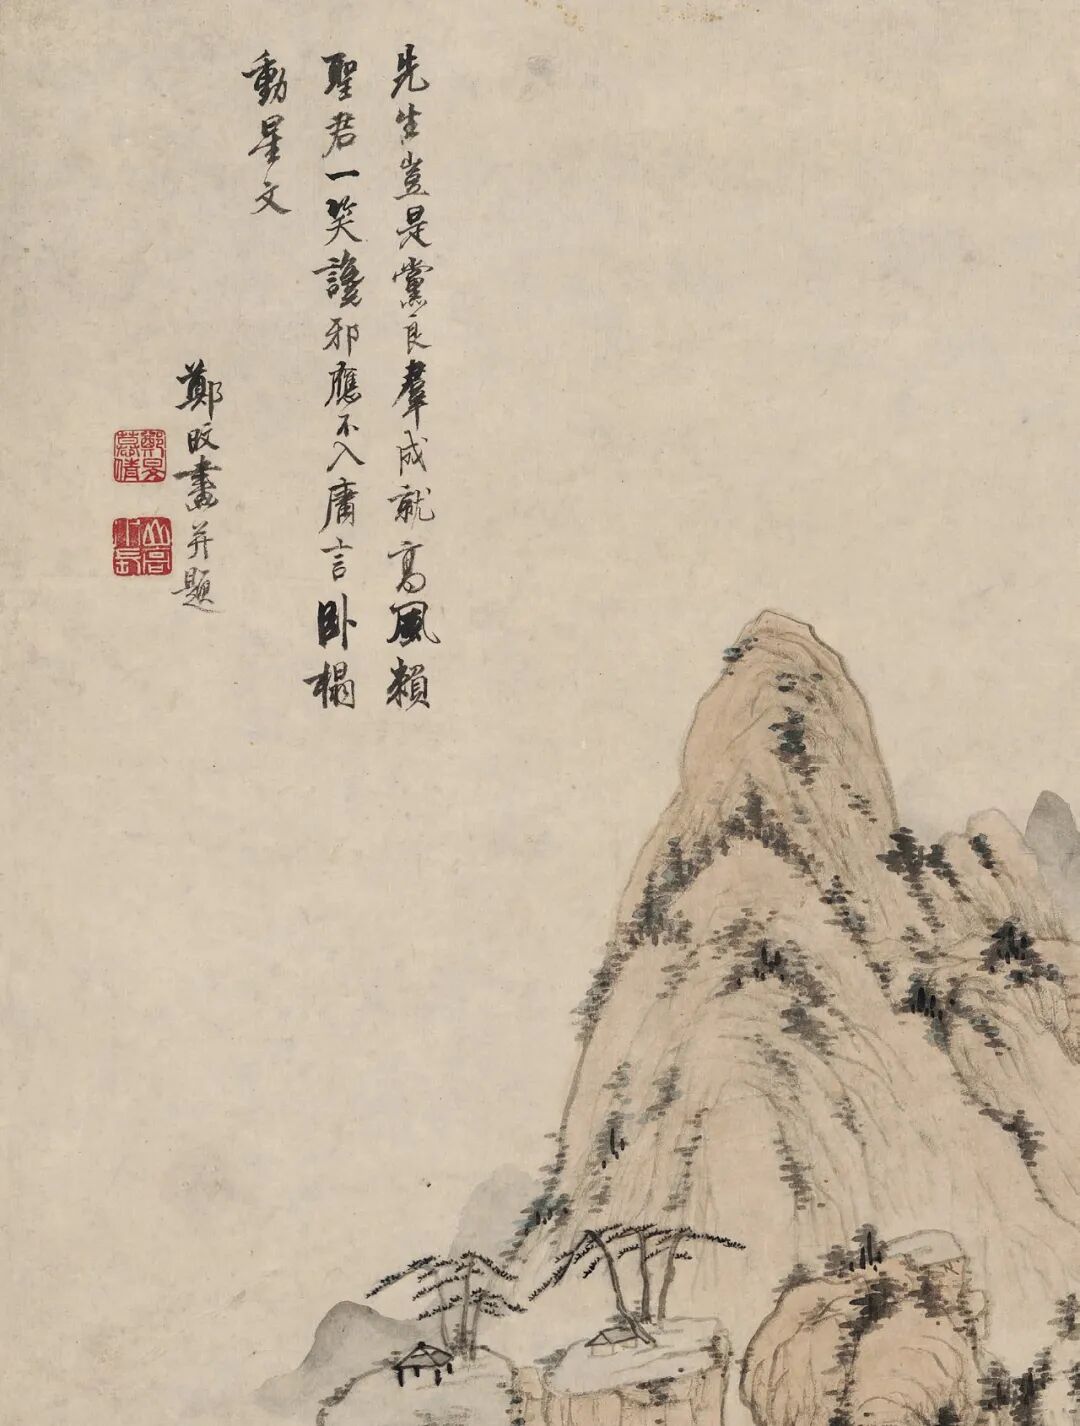 先生豈是黨良羣成就高風賴
聖君一笑讒邪應不入庸言卧榻
動星文
鄭旼畫并題
鄭旼
慕倩